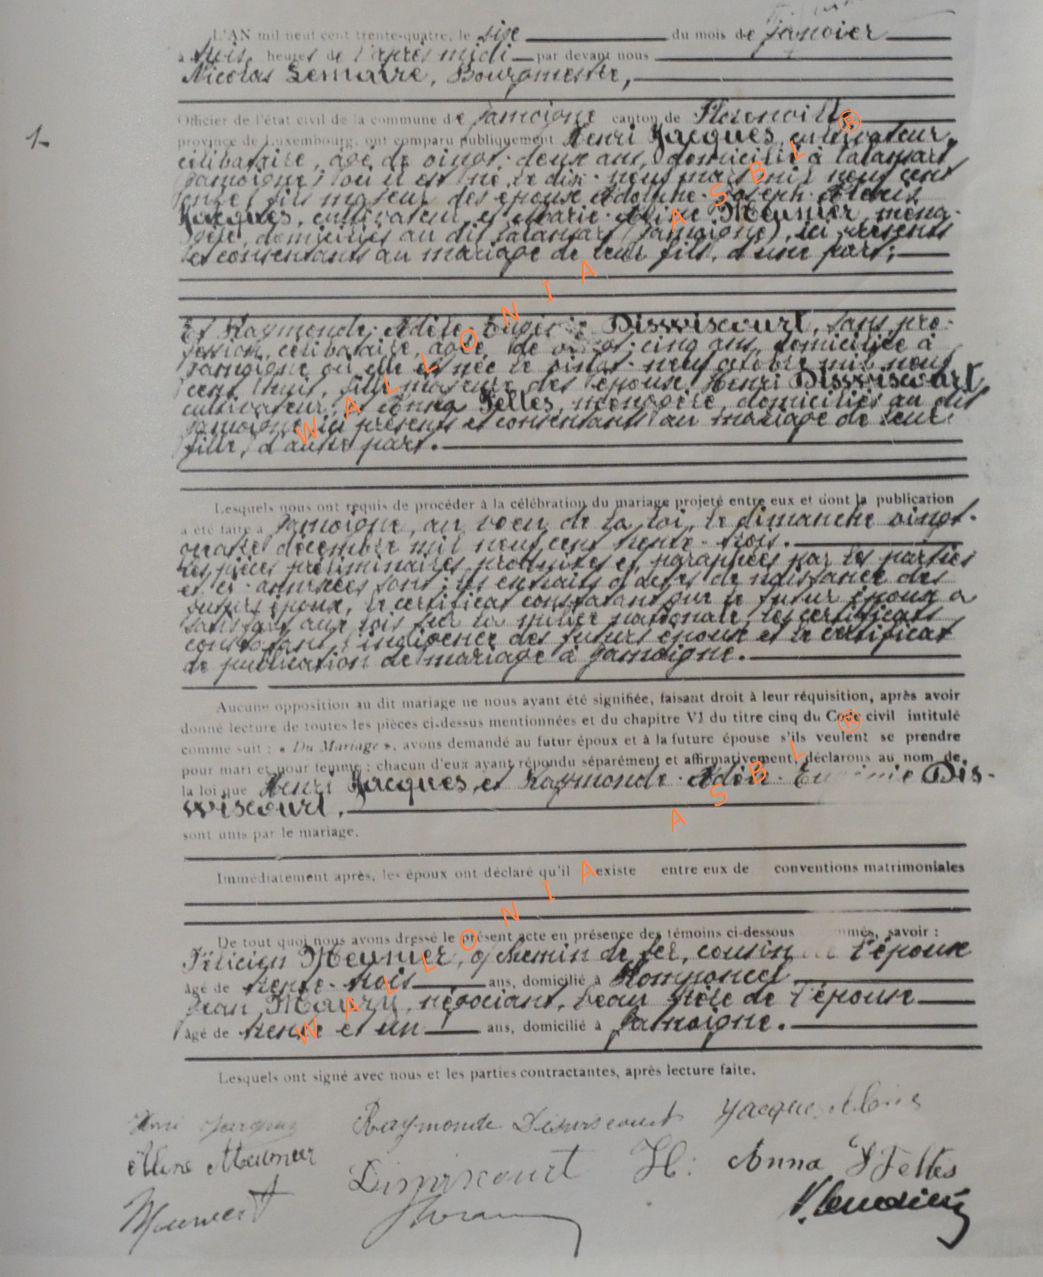 L'AN mil neuf cent trente-quatre, le six du mois de janvier
à huit heures de l'après midi par devant nous
Nicolas Lemaire, Bourgmestre,
Officier de l'état civil de la commune de Jamoigne canton de Florenville
province de Luxembourg, ont comparu publiquement Henri Jacques, cultivateur,
célibataire, âgé de vingt-deux ans, domicilié à Valansart
(Jamoigne) où il est né, le dix-neuf mars mil neuf cent
onze, fils majeur des époux Adonne-Joseph-Alexis
Jacques, cultivateur, et Marie-Aline Meunier, ména-
gère, domiciliés au dit Valansart (Jamoigne), ici présents
et consentants au mariage de leur fils, d'une part;
Et Raymonde-Adèle-Eugénie Disswiscourt, sans pro-
fession, célibataire, âgée de vingt-cinq ans, domiciliée à
Jamoigne où elle est née le vingt-neuf octobre mil neuf
cent huit, fille majeure des époux Henri Disswiscourt,
cultivateur, et Anna Felles, ménagère, domiciliés au dit
Jamoigne, ici présents et consentants au mariage de leur
fille, d'autre part.
Lesquels nous ont requis de procéder à la célébration du mariage projeté entre eux et dont la publication
a été faite à Jamoigne, au voeu de la loi, le dimanche vingt-
quatre décembre mil neuf cent trente-trois.
Les pièces préliminaires produites et paraphées par les parties
et ci-annexées sont: les extraits d'actes de naissance des
futurs époux, le certificat constatant que le futur époux a
satisfait aux lois sur la milice nationale, les certificats
constatant l'indigence des futurs époux et le certificat
de publication de mariage à Jamoigne.
Aucune opposition au dit mariage ne nous ayant été signifiée, faisant droit à leur réquisition, après avoir
donné lecture de toutes les pièces ci-dessus mentionnées et du chapitre VI du titre cinq du Code civil intitulé
comme suit : « Du Mariage », avons demandé au futur époux et à la future épouse s'ils veulent se prendre
pour mari et pour femme ; chacun d'eux ayant répondu séparément et affirmativement, déclarons au nom de
la loi que Henri Jacques, et Raymonde-Adèle-Eugénie Dis-
wiscourt,
sont unis par le mariage.
Immédiatement après, les époux ont déclaré qu'il existe entre eux de conventions matrimoniales
De tout quoi nous avons dressé le présent acte en présence des témoins ci-dessous nommés, savoir :
Félicien Meunier, chemin de fer, cousin l'épouse
âgé de trente-trois ans, domicilié à
Jean Maury, négociant, beau frère de l'épouse
âgé de trente et un ans, domicilié à Jamoigne.
Lesquels ont signé avec nous et les parties contractantes, après lecture faite.
Henri Jacques Raymonde Diswiscourt Jacques Alexis
Aline Meunier Diswiscourt H: Anna Felles
WALLONIA ASBL ®
WALLONIA ASBL ®